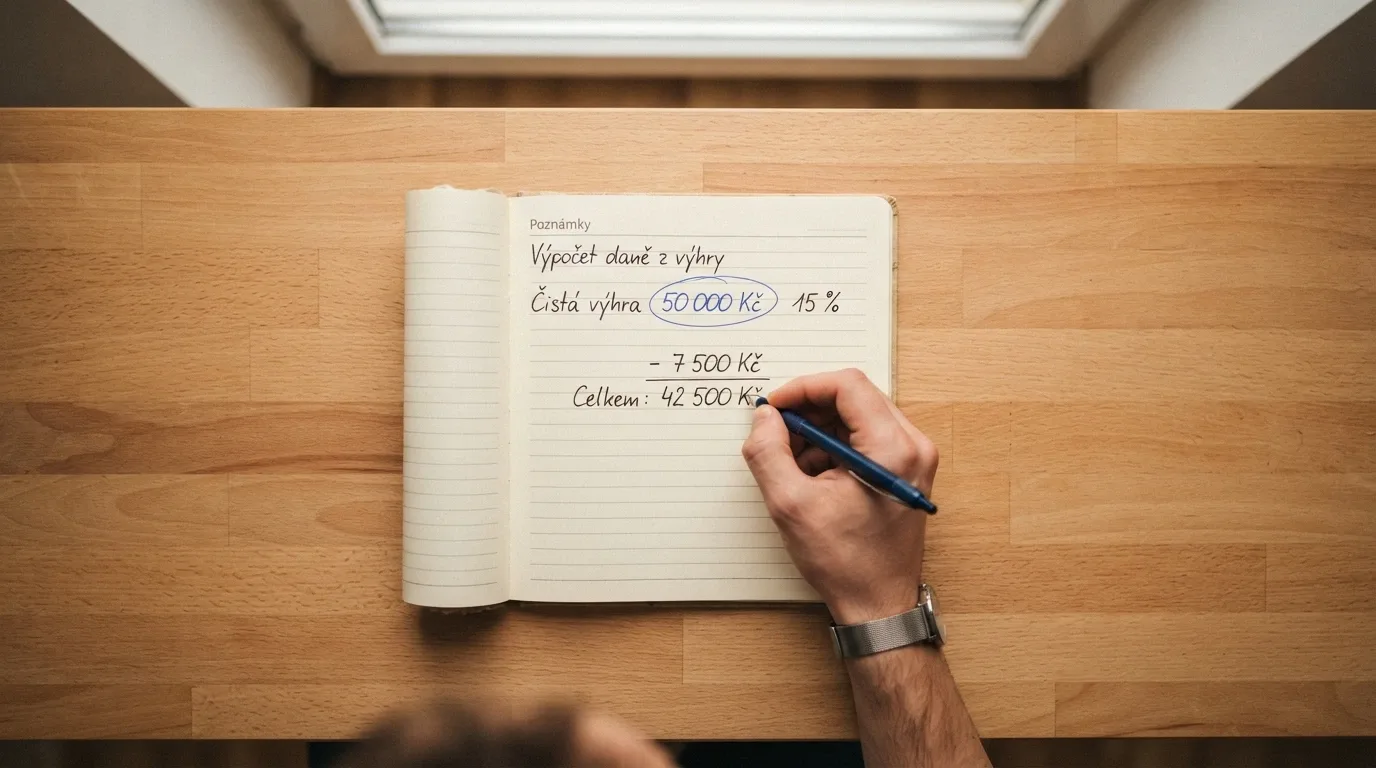 Poznámky
Výpočet daně z výhry
Čistá výhra 50 000 Kč 15 %
- 7 500 Kč
Celkem: 42 500 Kč